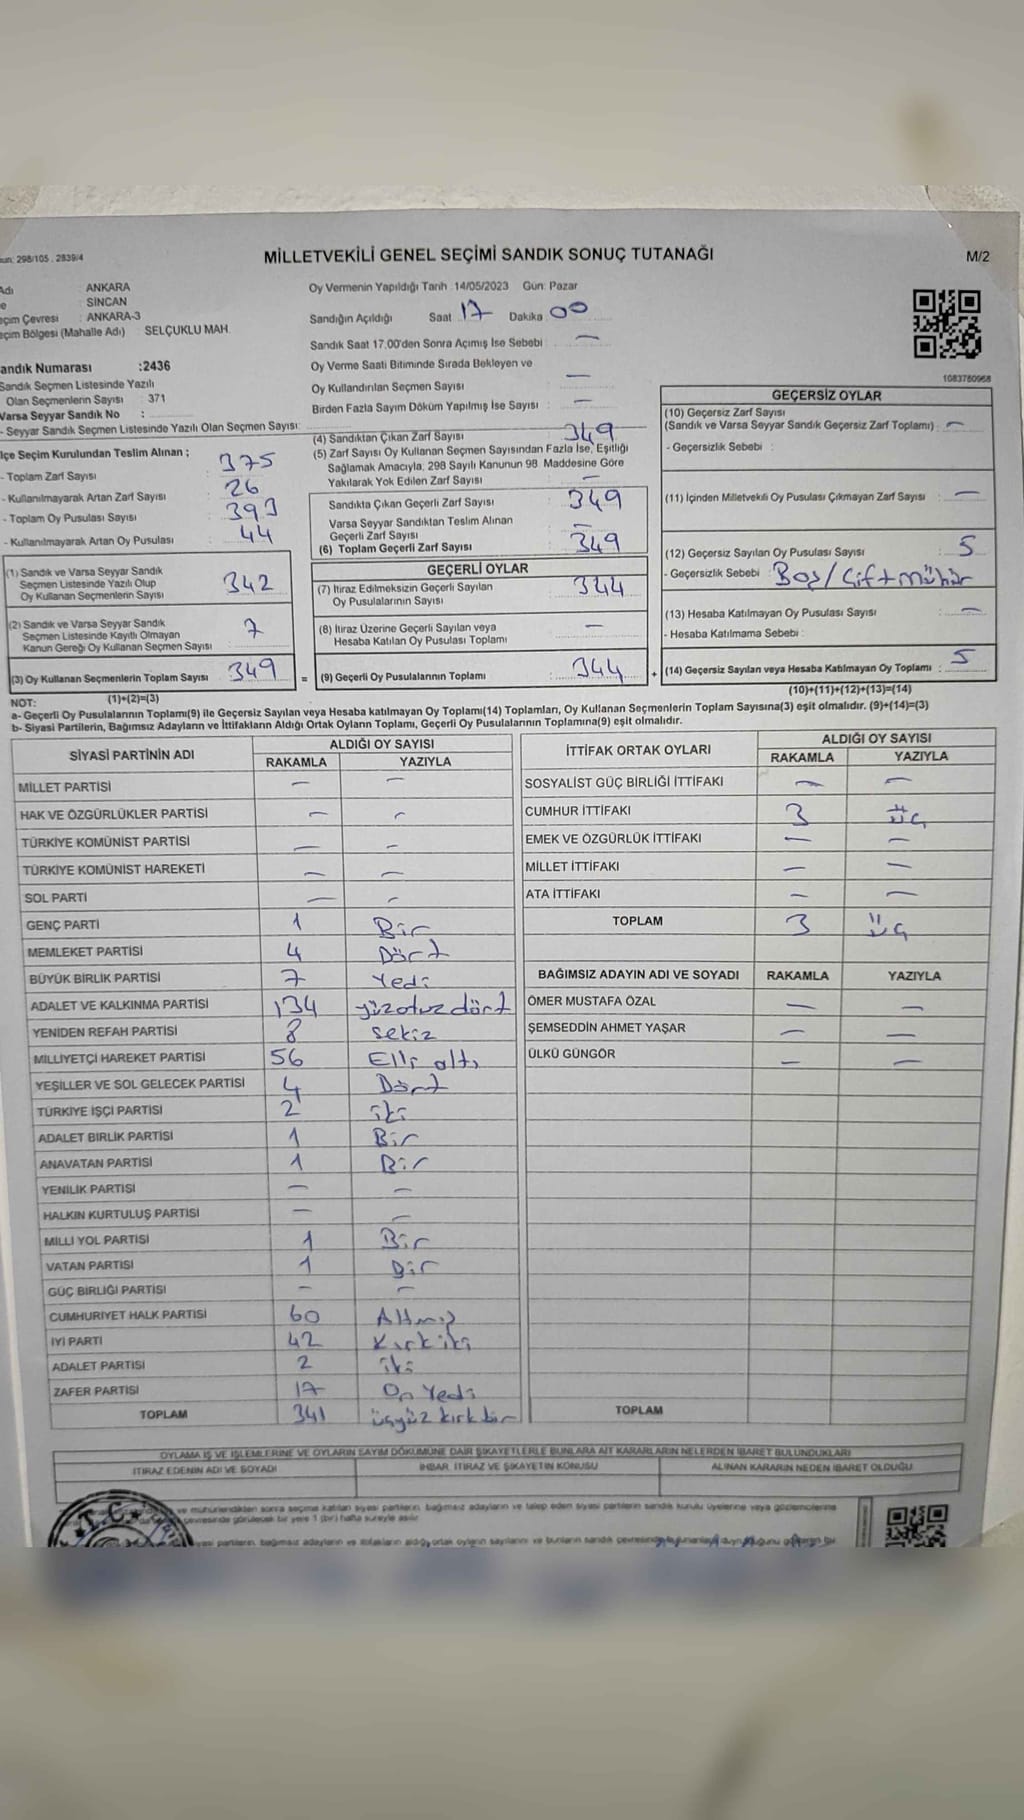 298/105 . 2839/4
MİLLETVEKİLİ GENEL SEÇİMİ SANDIK SONUÇ TUTANAĞI
M/2
Adı : ANKARA
e : SİNCAN
eçim Çevresi : ANKARA-3
eçim Bölgesi (Mahalle Adı) SELÇUKLU MAH.
andık Numarası :2436
Sandık Seçmen Listesinde Yazılı
Olan Seçmenlerin Sayısı : 371
Varsa Seyyar Sandık No :
- Seyyar Sandık Seçmen Listesinde Yazılı Olan Seçmen Sayısı:
lçe Seçim Kurulundan Teslim Alınan ;
- Toplam Zarf Sayısı : 375
- Kullanılmayarak Artan Zarf Sayısı : 26
- Toplam Oy Pusulası Sayısı : 393
- Kullanılmayarak Artan Oy Pusulası : 44
(1) Sandık ve Varsa Seyyar Sandık
Seçmen Listesinde Yazılı Olup
Oy Kullanan Seçmenlerin Sayısı : 342
(2) Sandık ve Varsa Seyyar Sandık
Seçmen Listesinde Kayıtlı Olmayan
Kanun Gereği Oy Kullanan Seçmen Sayısı : 7
(3) Oy Kullanan Seçmenlerin Toplam Sayısı : 349
(1)+(2)=(3)
Oy Vermenin Yapıldığı Tarih :14/05/2023 Gün: Pazar
Sandığın Açıldığı Saat 17 Dakika 00
Sandık Saat 17.00'den Sonra Açımış İse Sebebi : —
Oy Verme Saati Bitiminde Sırada Bekleyen ve
Oy Kullandırılan Seçmen Sayısı : —
Birden Fazla Sayım Döküm Yapılmış İse Sayısı : —
(4) Sandıktan Çıkan Zarf Sayısı : 349
(5) Zarf Sayısı Oy Kullanan Seçmen Sayısından Fazla İse, Eşitliği
Sağlamak Amacıyla, 298 Sayılı Kanunun 98. Maddesine Göre
Yakılarak Yok Edilen Zarf Sayısı : —
Sandıkta Çıkan Geçerli Zarf Sayısı : 349
Varsa Seyyar Sandıktan Teslim Alınan
Geçerli Zarf Sayısı : —
(6) Toplam Geçerli Zarf Sayısı : 349
GEÇERLİ OYLAR
(7) İtiraz Edilmeksizin Geçerli Sayılan
Oy Pusulalarının Sayısı : 344
(8) İtiraz Üzerine Geçerli Sayılan veya
Hesaba Katılan Oy Pusulası Toplamı : —
= (9) Geçerli Oy Pusulalarının Toplamı : 344 +
1083760968
GEÇERSİZ OYLAR
(10) Geçersiz Zarf Sayısı
(Sandık ve Varsa Seyyar Sandık Geçersiz Zarf Toplamı) : —
- Geçersizlik Sebebi :
(11) İçinden Milletvekili Oy Pusulası Çıkmayan Zarf Sayısı : —
(12) Geçersiz Sayılan Oy Pusulası Sayısı : 5
- Geçersizlik Sebebi : Boş/Çift mühür
(13) Hesaba Katılmayan Oy Pusulası Sayısı : —
- Hesaba Katılmama Sebebi :
(14) Geçersiz Sayılan veya Hesaba Katılmayan Oy Toplamı : 5
(10)+(11)+(12)+(13)=(14)
NOT:
a- Geçerli Oy Pusulalarının Toplamı(9) ile Geçersiz Sayılan veya Hesaba katılmayan Oy Toplamı(14) Toplamları, Oy Kullanan Seçmen Toplam Sayısına(3) eşit olmalıdır. (9)+(14)=(3)
b- Siyasi Partilerin, Bağımsız Adayların ve İttifakların Aldığı Ortak Oyların Toplamı, Geçerli Oy Pusulalarının Toplamına(9) eşit olmalıdır.
SİYASİ PARTİNİN ADI ALDIĞI OY SAYISI
RAKAMLA YAZIYLA
MİLLET PARTİSİ — —
HAK VE ÖZGÜRLÜKLER PARTİSİ — —
TÜRKİYE KOMÜNİST PARTİSİ — —
TÜRKİYE KOMÜNİST HAREKETİ — —
SOL PARTİ — —
GENÇ PARTİ 1 Bir
MEMLEKET PARTİSİ 4 Dört
BÜYÜK BİRLİK PARTİSİ 7 Yedi
ADALET VE KALKINMA PARTİSİ 134 yüzotuz dört
YENİDEN REFAH PARTİSİ 8 sekiz
MİLLİYETÇİ HAREKET PARTİSİ 56 Elli altı
YEŞİLLER VE SOL GELECEK PARTİSİ 4 Dört
TÜRKİYE İŞÇİ PARTİSİ 2 iki
ADALET BİRLİK PARTİSİ 1 Bir
ANAVATAN PARTİSİ 1 Bir
YENİLİK PARTİSİ — —
HALKIN KURTULUŞ PARTİSİ — —
MİLLİ YOL PARTİSİ 1 Bir
VATAN PARTİSİ 1 Bir
GÜÇ BİRLİĞİ PARTİSİ — —
CUMHURİYET HALK PARTİSİ 60 Altmış
İYİ PARTİ 42 Kırk iki
ADALET PARTİSİ 2 iki
ZAFER PARTİSİ 17 On Yedi
TOPLAM 341 üçyüz kırk bir
İTTİFAK ORTAK OYLARI ALDIĞI OY SAYISI
RAKAMLA YAZIYLA
SOSYALİST GÜÇ BİRLİĞİ İTTİFAKI — —
CUMHUR İTTİFAKI 3 üç
EMEK VE ÖZGÜRLÜK İTTİFAKI — —
MİLLET İTTİFAKI — —
ATA İTTİFAKI — —
TOPLAM 3 üç
BAĞIMSIZ ADAYIN ADI VE SOYADI RAKAMLA YAZIYLA
ÖMER MUSTAFA ÖZAL — —
ŞEMSEDDİN AHMET YAŞAR — —
ÜLKÜ GÜNGÖR — —
TOPLAM
OYLAMA İŞ VE İŞLEMLERİNE VE OYLARIN SAYIM DÖKÜMÜNE DAİR ŞİKAYETLERLE BUNLARA AİT KARARLARIN NELERDEN İBARET BULUNDUKLARI
İTİRAZ EDENİN ADI VE SOYADI İHBAR, İTİRAZ VE ŞİKAYETİN KONUSU ALINAN KARARIN NEDEN İBARET OLDUĞU
ve mühürlendikten sonra seçime katılan siyasi partilerin, bağımsız adayların ve talep eden siyasi partilerin sandık kurulu üyelerine veya gözlemcilerine
çevresinde görülecek bir yere 1 (bir) hafta süreyle asılır.
T.C.
partilerin, bağımsız adayların ve ittifakların aldığı ortak oyların sayılarını ve bunların sandık çevresinde